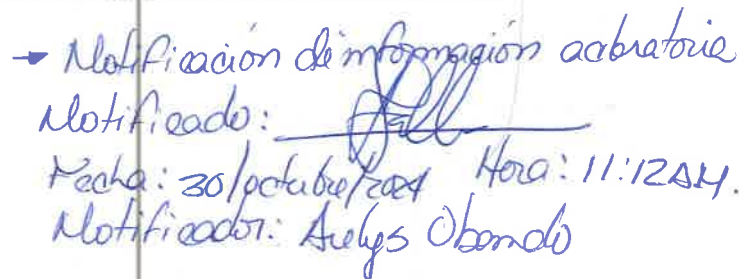 → Notificación de información aclaratoria
Notificado:
Fecha: 30/octubre/2024 Hora: 11:12 AM.
Notificador: Obando